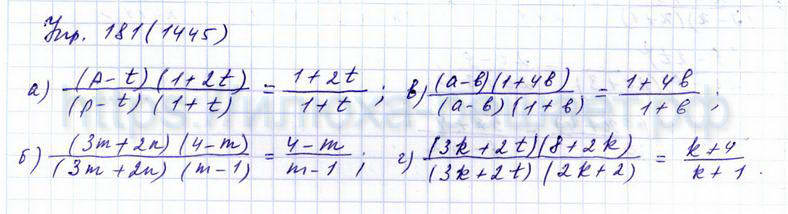 Упр. 181 (1445)
а) (p-t)(1+2t)/(p-t)(1+t) = 1+2t/1+t ; в) (a-в)(1+4в)/(a-в)(1+в) = 1+4в/1+в ;
б) (3m+2n)(4-m)/(3m+2n)(m-1) = 4-m/m-1 ; г) (3k+2t)(8+2k)/(3k+2t)(2k+2) = k+4/k+1 .